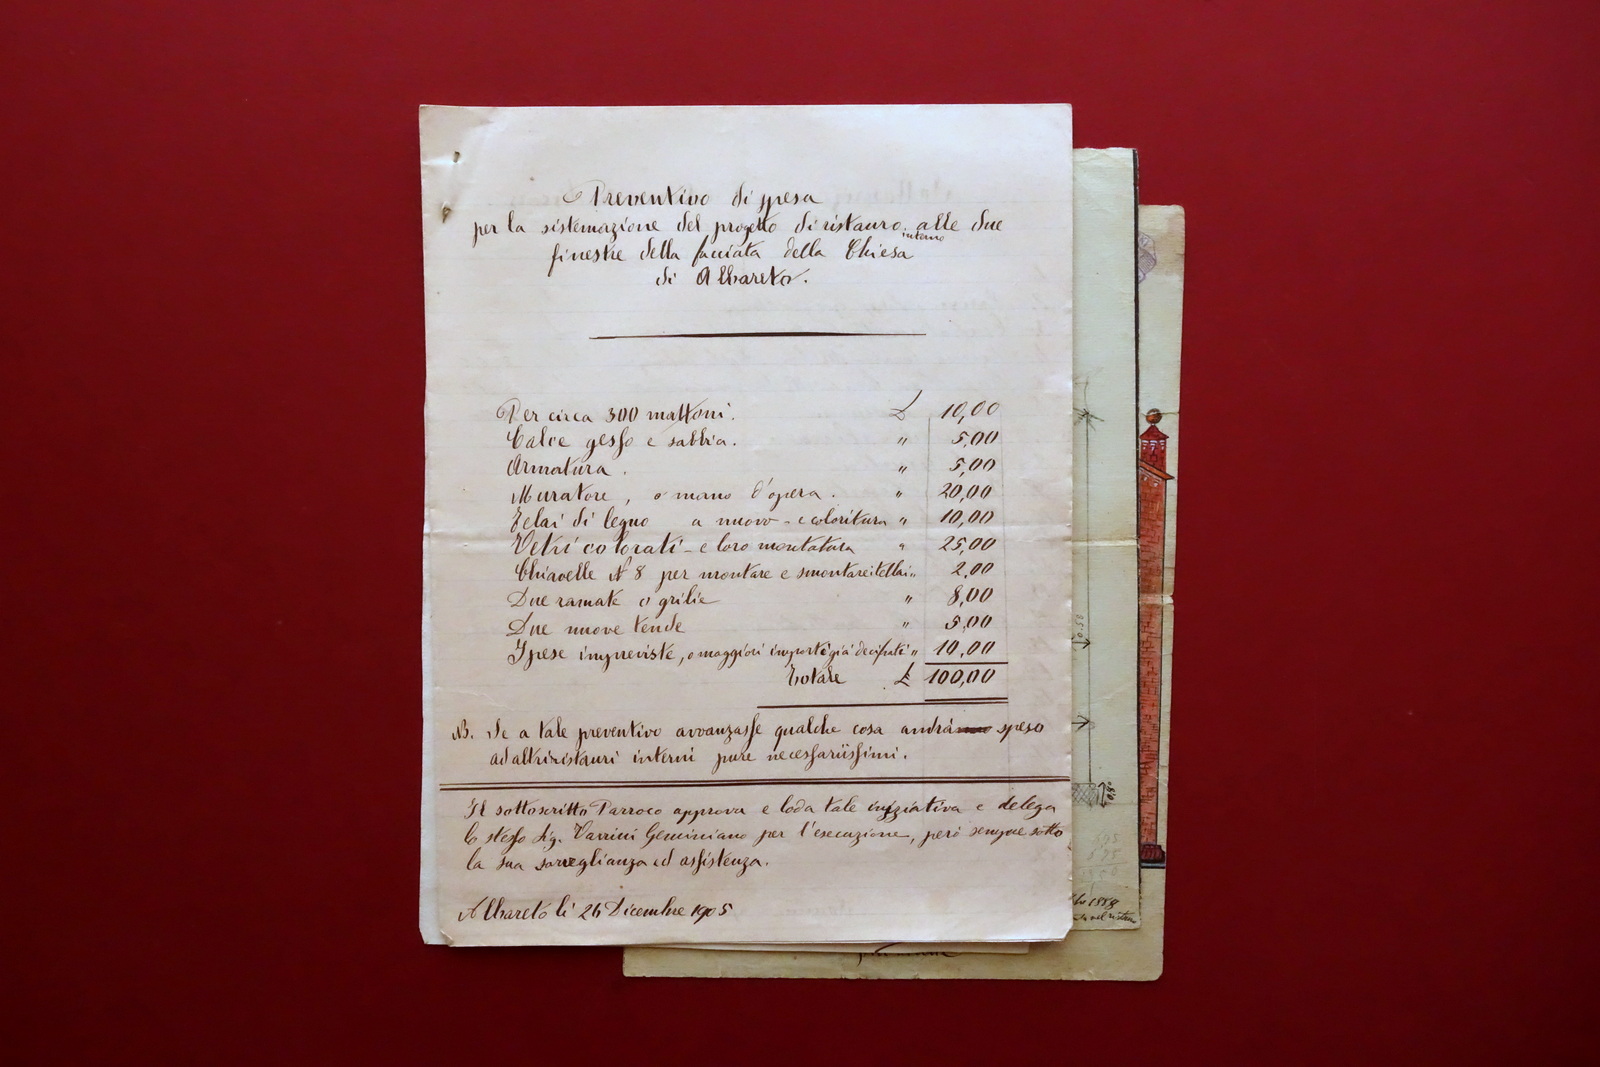 Preventivo di spesa
per la sistemazione del progetto di ristauro interno alle due
finestre della facciata della Chiesa
di Albareto.
Per circa 300 mattoni. £ 10,00
Calce gesso e sabbia. " 5,00
Armatura. " 5,00
Muratore, o mano d'opera. " 20,00
Telai di legno a nuovo - e coloritura " 10,00
Vetri colorati - e loro montatura " 25,00
Chiavelle N 8 per montare e smontare i tellai " 2,00
Due ramate o grilie " 8,00
Due nuove tende " 5,00
Spese impreviste, o maggiori importi già decifrati " 10,00
Totale £ 100,00
NB. Se a tale preventivo avvanzasse qualche cosa andrà speso
ad altri ristauri interni pure necessariissimi.
Il sottoscritto Parroco approva e loda tale iniziativa e delega
lo stesso Sig. Varrini Geminiano per l'esecuzione, però sempre sotto
la sua sorveglianza ed assistenza.
Albareto li 26 Dicembre 1905
0.58
1888